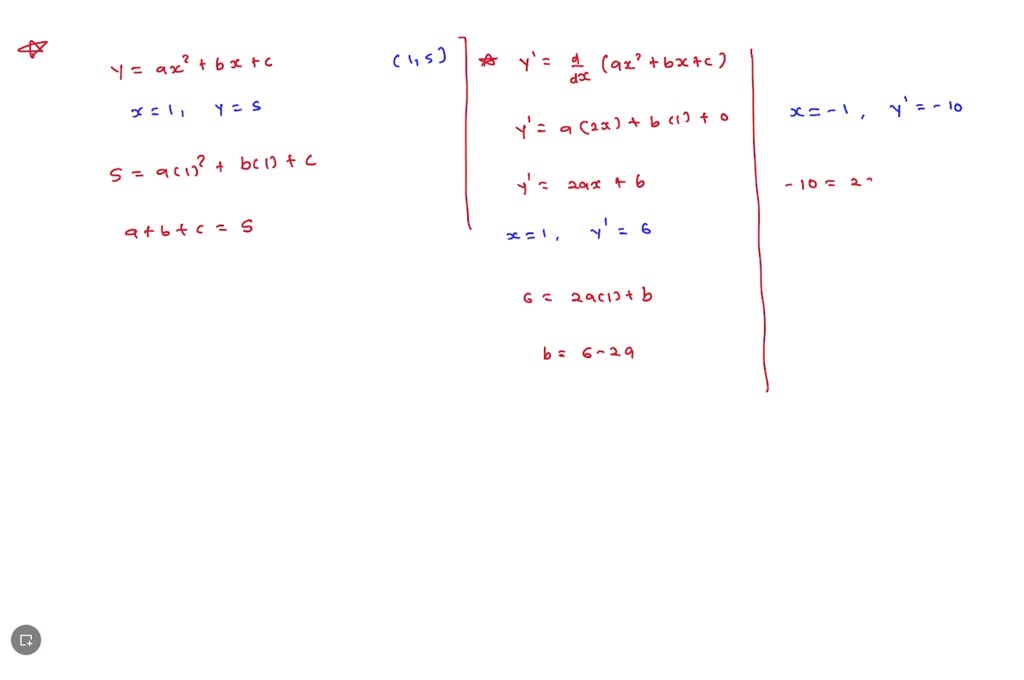 y = ax² + bx + c
x = 1, y = 5
5 = a(1)² + b(1) + c
a + b + c = 5
(1, 5)
y' = d/dx (ax² + bx + c)
y' = a(2x) + b(1) + 0
y' = 2ax + b
x = 1, y' = 6
6 = 2a(1) + b
b = 6 - 2a
x = -1, y' = -10
-10 = 2